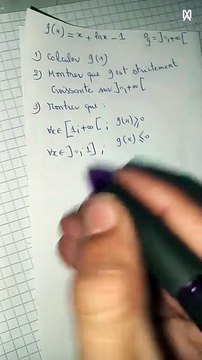 g(x) = x + lnx - 1 D_g = ]0,+∞[
1) Calculer g(1)
2) Montrer que g est strictement
Croissante sur ]0,+∞[
3) Montrer que :
∀x∈[1,+∞[ ; g(x)≥0
∀x∈]0,1] ; g(x)≤0